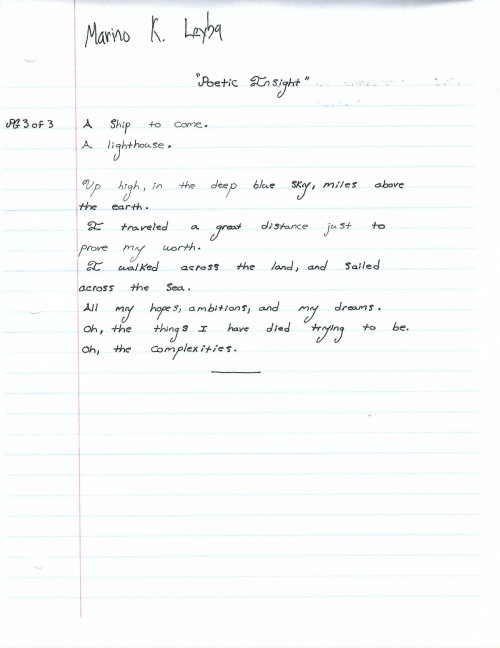 Marino K. Leyba
"Poetic Insight"
PG 3 of 3 A Ship to come.
A lighthouse.
Up high, in the deep blue sky, miles above
the earth.
I traveled a great distance just to
prove my worth.
I walked across the land, and sailed
across the sea.
All my hopes, ambitions, and my dreams.
Oh, the things I have died trying to be.
Oh, the complexities.